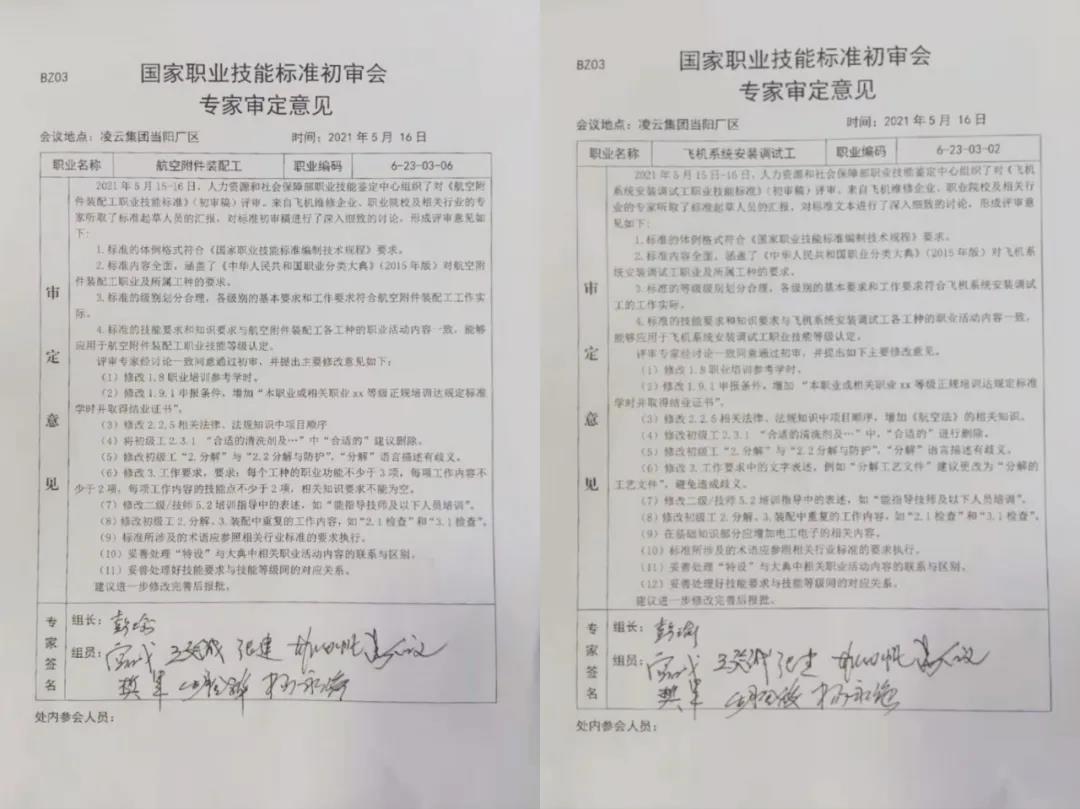 BZ03
国家职业技能标准初审会
专家审定意见
会议地点：凌云集团当阳厂区 时间：2021年5月16日
职业名称 航空附件装配工 职业编码 6-23-03-06
审定意见
2021年5月15-16日，人力资源和社会保障部职业技能鉴定中心组织了对《航空附
件装配工职业技能标准》（初审稿）评审。来自飞机维修企业、职业院校及相关行业的专
家听取了标准起草人员的汇报，对标准初审稿进行了深入细致的讨论，形成评审意见如
下：
1.标准的体例格式符合《国家职业技能标准编制技术规程》要求。
2.标准内容全面，涵盖了《中华人民共和国职业分类大典》（2015年版）对航空附
件装配工职业及所属工种的要求。
3.标准的级别划分合理，各级别的基本要求和工作要求符合航空附件装配工工作实
际。
4.标准的技能要求和知识要求与航空附件装配工各工种的职业活动内容一致，能够
应用于航空附件装配工职业技能等级认定。
评审专家经讨论一致同意通过初审，并提出主要修改意见如下：
（1）修改1.8职业培训参考学时。
（2）修改1.9.1申报条件，增加“本职业或相关职业xx等级正规培训达规定标准
学时并取得结业证书”。
（3）修改2.2.5相关法律、法规知识中项目顺序
（4）将初级工2.3.1“合适的清洗剂及…”中“合适的”建议删除。
（5）修改初级工“2.分解”与“2.2分解与防护”，“分解”语言描述有歧义。
（6）修改3.工作要求，要求：每个工种的职业功能不少于3项，每项工作内容不
少于2项，每项工作内容的技能点不少于2项，相关知识要求不能为空。
（7）修改二级/技师5.2培训指导中的表述，如“能指导技师及以下人员培训”。
（8）修改初级工2.分解、3.装配中重复的工作内容，如“2.1检查”和“3.1检查”。
（9）标准所涉及的术语应参照相关行业标准的要求执行。
（10）妥善处理“特设”与大典中相关职业活动内容的联系与区别。
（11）妥善处理好技能要求与技能等级间的对应关系。
建议进一步修改完善后报批。
专家签名
组长：彭瑜
组员：
樊军
处内参会人员：
BZ03
国家职业技能标准初审会
专家审定意见
会议地点：凌云集团当阳厂区 时间：2021年5月16日
职业名称 飞机系统安装调试工 职业编码 6-23-03-02
审定意见
2021年5月15日-16日，人力资源和社会保障部职业技能鉴定中心组织了对《飞机
系统安装调试工职业技能标准》（初审稿）评审。来自飞机维修企业、职业院校及相关行
业的专家听取了标准起草人员的汇报，对标准文本进行了深入细致的讨论，形成评审意
见如下：
1.标准的体例格式符合《国家职业技能标准编制技术规程》要求。
2.标准内容全面，涵盖了《中华人民共和国职业分类大典》（2015年版）对飞机系
统安装调试工职业及所属工种的要求。
3.标准的等级级别划分合理，各级别的基本要求和工作要求符合飞机系统安装调试
工的工作实际。
4.标准的技能要求和知识要求与飞机系统安装调试工各工种的职业活动内容一致，
能够应用于飞机系统安装调试工职业技能等级认定。
评审专家经讨论一致同意通过初审，并提出如下主要修改意见。
（1）修改1.8职业培训参考学时。
（2）修改1.9.1申报条件，增加“本职业或相关职业xx等级正规培训达规定标准
学时并取得结业证书”。
（3）修改2.2.5相关法律、法规知识中项目顺序，增加《航空法》的相关知识。
（4）修改初级工2.3.1“合适的清洗剂及…”中，“合适的”进行删除。
（5）修改初级工“2.分解”与“2.2分解与防护”，“分解”语言描述有歧义。
（6）修改3.工作要求中的文字表述，例如“分解工艺文件”建议更改为“分解的
工艺文件”，避免造成歧义。
（7）修改二级/技师5.2培训指导中的表述，如“能指导技师及以下人员培训”。
（8）修改初级工2.分解、3.装配中重复的工作内容，如“2.1检查”和“3.1检查”。
（9）在基础知识部分应增加电工电子的相关内容。
（10）标准所涉及的术语应参照相关行业标准的要求执行。
（11）妥善处理“特设”与大典中相关职业活动内容的联系与区别。
（12）妥善处理好技能要求与技能等级间的对应关系。
建议进一步修改完善后报批。
专家签名
组长：彭瑜
组员：
樊军
处内参会人员：